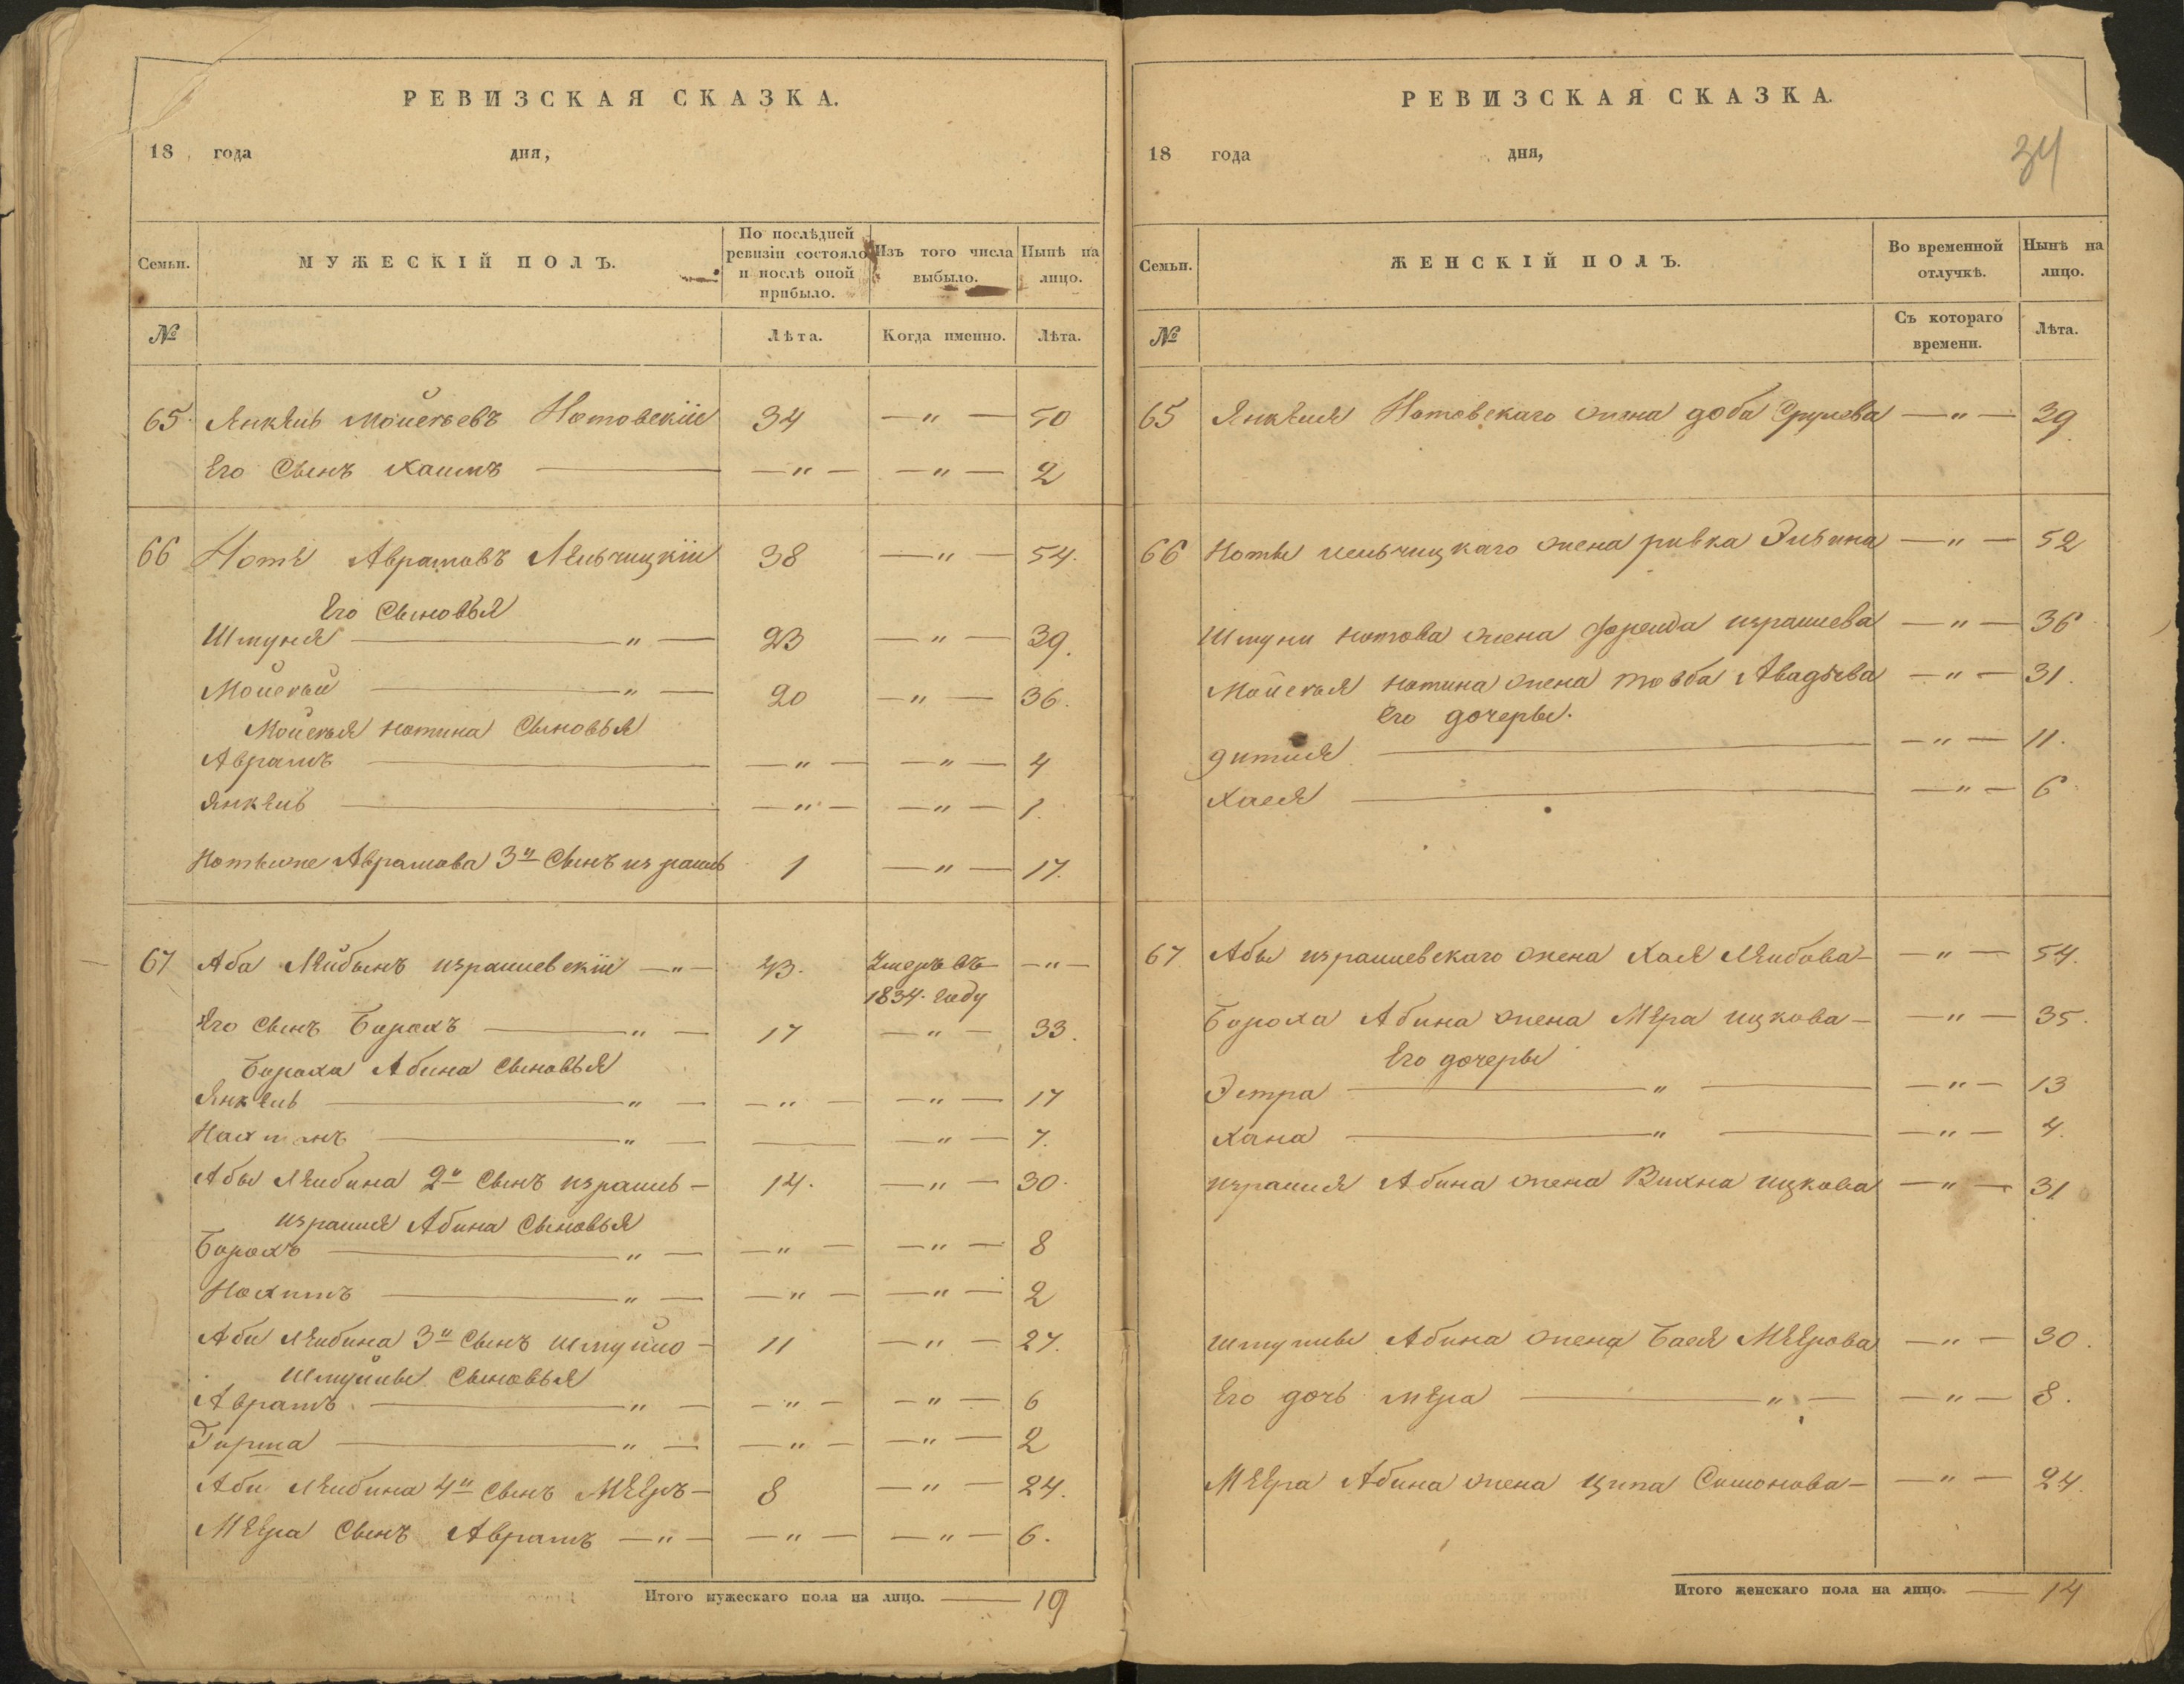 РЕВИЗСКАЯ СКАЗКА.
18 года дня,
Семьи. МУЖЕСКІЙ ПОЛЪ. По послѣдней ревизіи состояло и послѣ оной прибыло. Изъ того числа выбыло. Нынѣ на лицо.
№ Лѣта. Когда именно. Лѣта.
65. Янкѣль Мойсѣевъ Нотовскій 34 — " — 50
Его Сынъ Хаимъ — " — — " — 2
66 Нотѣ Аврамовъ Лѣльчицкій 38 — " — 54.
Его Сыновья
Шмуня — " — 23 — " — 39.
Мойсѣй — " — 20 — " — 36.
Мойсѣя Нотина Сыновья
Аврамъ — " — — " — 4
Янкѣль — " — — " — 1.
Нотыже Аврамова 3й Сынъ израиль 1 — " — 17.
67 Аба Лѣйбынъ израилевскій — " — 43. Умеръ въ — " —
1834. году
Его Сынъ Борохъ — " — 17 — " — 33.
Бороха Абина Сыновья
Янкѣль — " — — " — — " — 17
Нахманъ — " — — — " — 7.
Абы Лѣибина 2й Сынъ израиль — 14. — " — 30.
израиля Абина Сыновья
Борохъ — " — — " — — " — 8
Нохимъ — " — — " — — " — 2
Абы Лѣибина 3й Сынъ Шмуйло — 11 — " — 27.
Шмуйлы Сыновья
Аврамъ — " — — " — — " — 6
Гирша — " — — " — — " — 2
Абы Лѣибина 4й Сынъ Мѣѣръ — 8 — " — 24.
Мѣѣра Сынъ Аврамъ — " — — " — — " — 6.
Итого мужескаго пола на лицо. — 19
РЕВИЗСКАЯ СКАЗКА.
34
18 года дня,
Семьи. ЖЕНСКІЙ ПОЛЪ. Во временной отлучкѣ. Нынѣ на лицо.
№ Съ котораго времени. Лѣта.
65 Янкѣля Нотовскаго жена доба Срулева — " — 39
66 Ноты лельчицкаго жена ривка Эльина — " — 52
Шмуни нотова жена Фрейда израилева — " — 36
Мойсѣя нотина жена товба Авадѣева — " — 31.
Его дочеры.
дитля — " — 11.
Хася — " — 6
67 Абы израилевскаго жена Хая Лѣибова — — " — 54.
Бороха Абина жена Мѣра ицкова — — " — 35.
Его дочеры
Эстра — " — — " — 13
Хана — " — — " — 4.
израиля Абина жена Вихна ицкова — " — 31
Шмуйлы Абина жена Бася Мѣѣрова — " — 30.
Его дочь мѣра — " — — " — 8.
Мѣѣра Абина жена ципа Симонова — — " — 24.
Итого женскаго пола на лицо. — 14